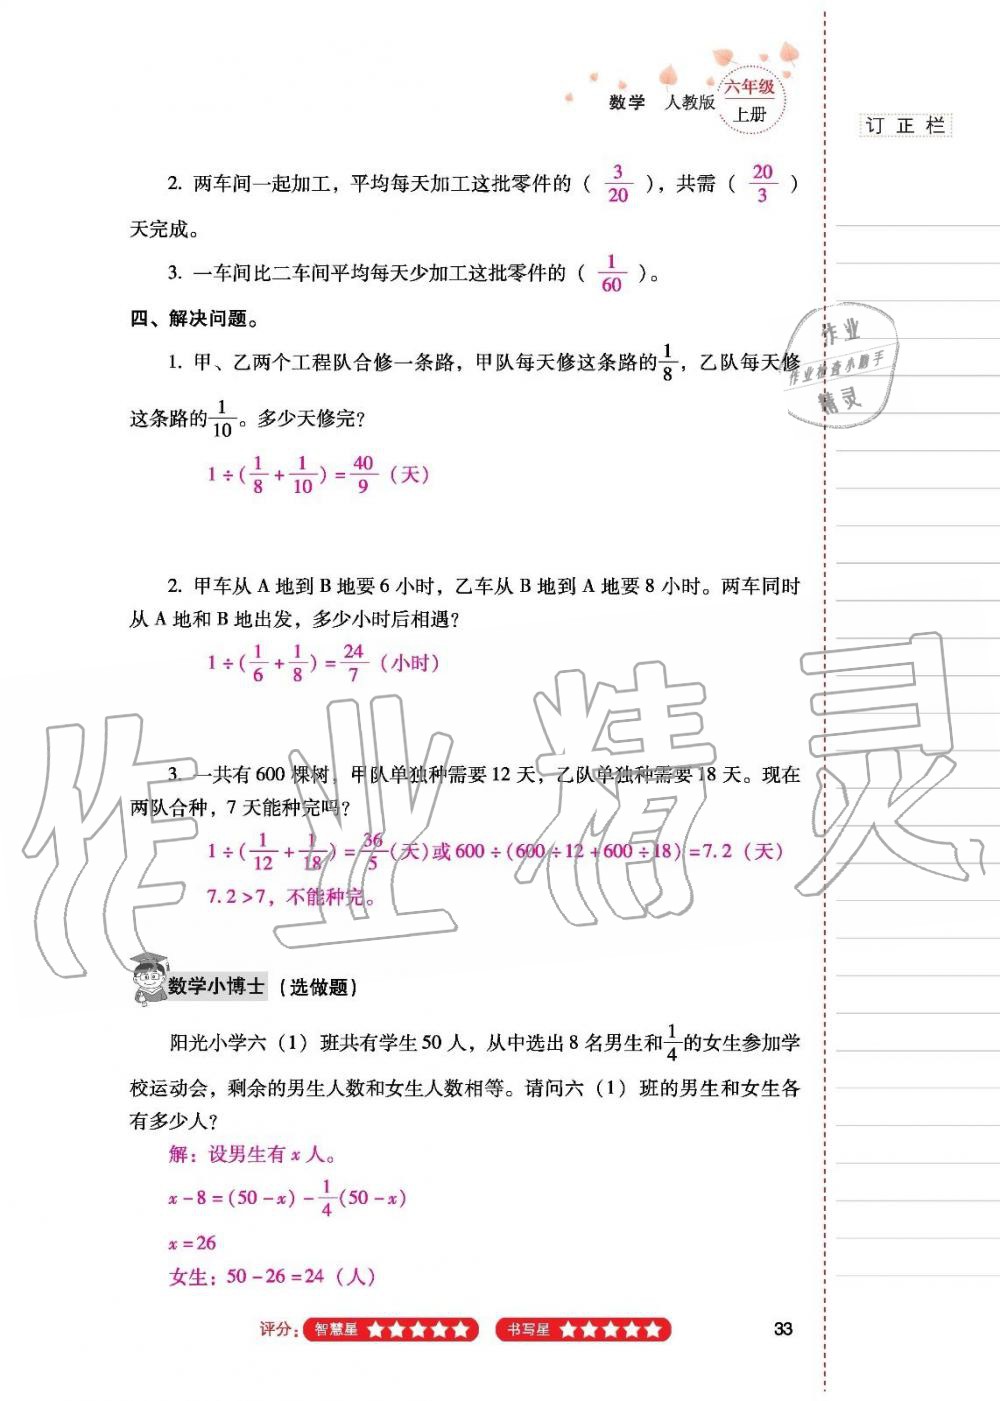 数学 人教版 六年级
上册
订正栏
2. 两车间一起加工，平均每天加工这批零件的（ 3/20 ），共需（ 20/3 ）
天完成。
3. 一车间比二车间平均每天少加工这批零件的（ 1/60 ）。
四、解决问题。
1. 甲、乙两个工程队合修一条路，甲队每天修这条路的1/8，乙队每天修
这条路的1/10。多少天修完？
1÷(1/8+1/10)=40/9（天）
2. 甲车从 A 地到 B 地要 6 小时，乙车从 B 地到 A 地要 8 小时。两车同时
从 A 地和 B 地出发，多少小时后相遇？
1÷(1/6+1/8)=24/7（小时）
3. 一共有 600 棵树，甲队单独种需要 12 天，乙队单独种需要 18 天。现在
两队合种，7 天能种完吗？
1÷(1/12+1/18)=36/5(天)或 600÷(600÷12+600÷18)=7.2（天）
7.2>7，不能种完。
数学小博士（选做题）
阳光小学六（1）班共有学生 50 人，从中选出 8 名男生和1/4的女生参加学
校运动会，剩余的男生人数和女生人数相等。请问六（1）班的男生和女生各
有多少人？
解：设男生有 x 人。
x-8=(50-x)-1/4(50-x)
x=26
女生：50-26=24（人）
评分：智慧星★★★★★ 书写星★★★★★
33
作业
作业检查小助手
精灵
作业精灵